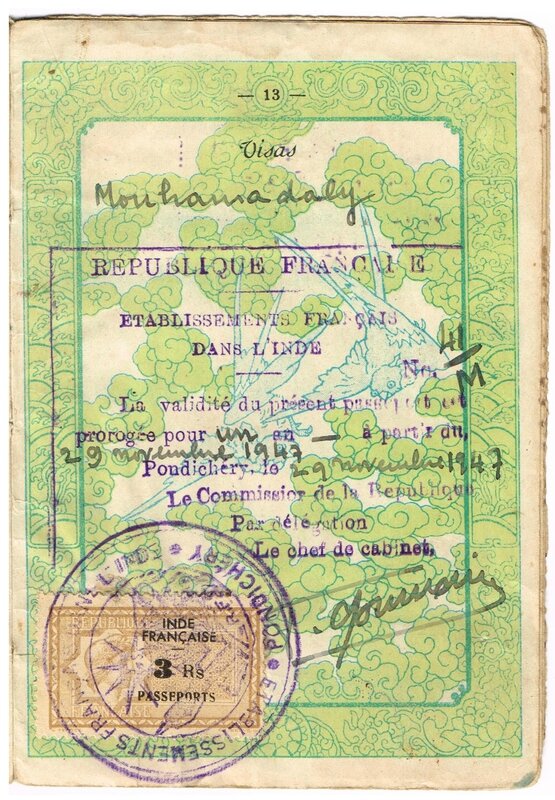 — 13 —
Visas
Mouhamadaly
REPUBLIQUE FRANCAISE
ETABLISSEMENTS FRANÇAIS
DANS L'INDE
No. 41/M
La validité du présent passeport est
prorogée pour un an — à partir du,
29 novembre 1947
Pondichéry, le 29 novembre 1947
Le Commissior de la Republique
Par délégation
Le chef de cabinet,
INDE
FRANÇAISE
3 Rs
PASSEPORTS
REPUBLIQUE
ETABLISSEMENTS FRANÇAIS
PONDICHÉRY